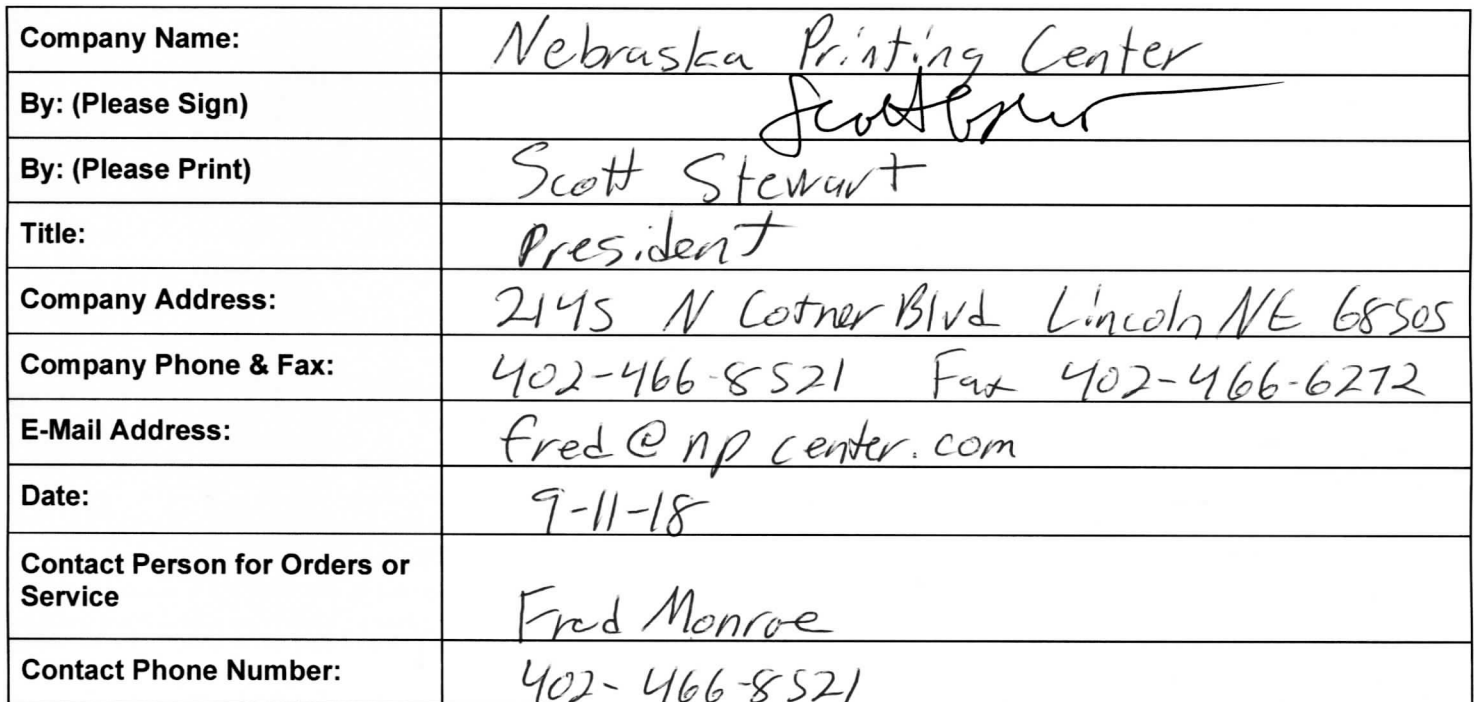 Company Name: Nebraska Printing Center
By: (Please Sign)
By: (Please Print) Scott Stewart
Title: President
Company Address: 2145 N Cotner Blvd Lincoln NE 68505
Company Phone & Fax: 402-466-8521 Fax 402-466-6272
E-Mail Address: fred@npcenter.com
Date: 9-11-18
Contact Person for Orders or
Service Fred Monroe
Contact Phone Number: 402-466-8521